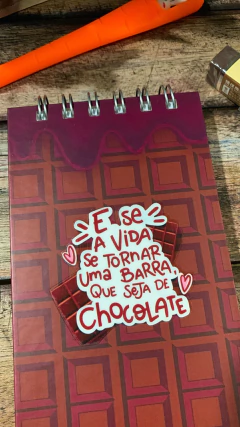 E se
A VIDA
se TORNAR
uma BARRA,
QUE SEJA DE
CHOCOLATE